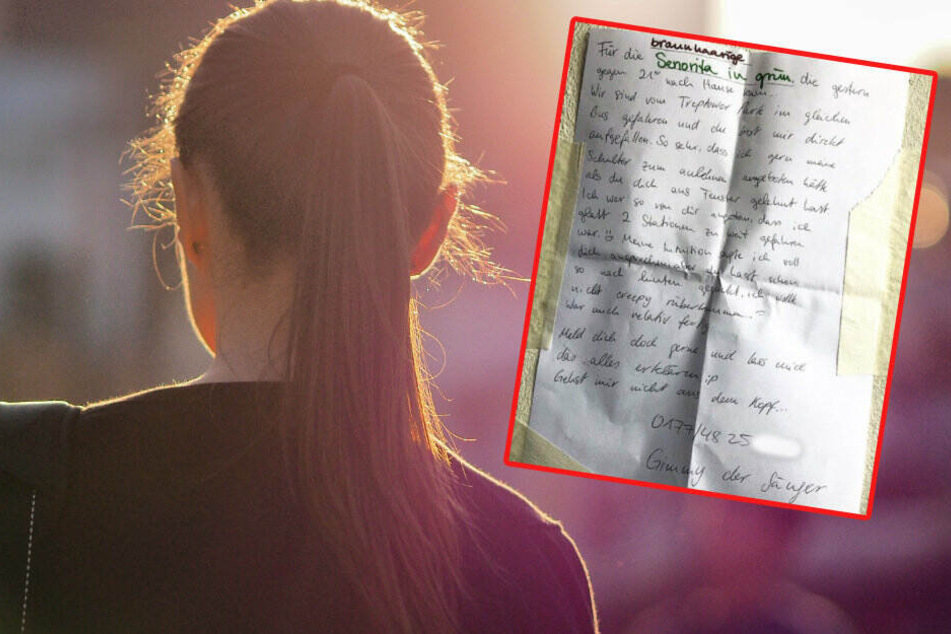 braunhaarige
Für die Senorita in grün, die gestern
gegen 21⁰⁰ nach Hause kam.
Wir sind vom Treptower Park im gleichen
Bus gefahren und du bist mir direkt
aufgefallen. So sehr, dass ich gern meine
Schulter zum anlehnen angeboten hätte
als du dich ans Fenster gelehnt hast
Ich war so von dir angetan, dass ich
glatt 2 Stationen zu weit gefahren
war. Meine Intuition sagte ich soll
dich ansprechen, aber du hast schon
so nach hinten geguckt, ich wollte
nicht creepy rüberkommen.
War auch relativ fertig
Meld dich doch gerne und lass mich
das alles erklären ;p
Gehst mir nicht aus dem Kopf...
0177/48 25
Gimmy der Sänger